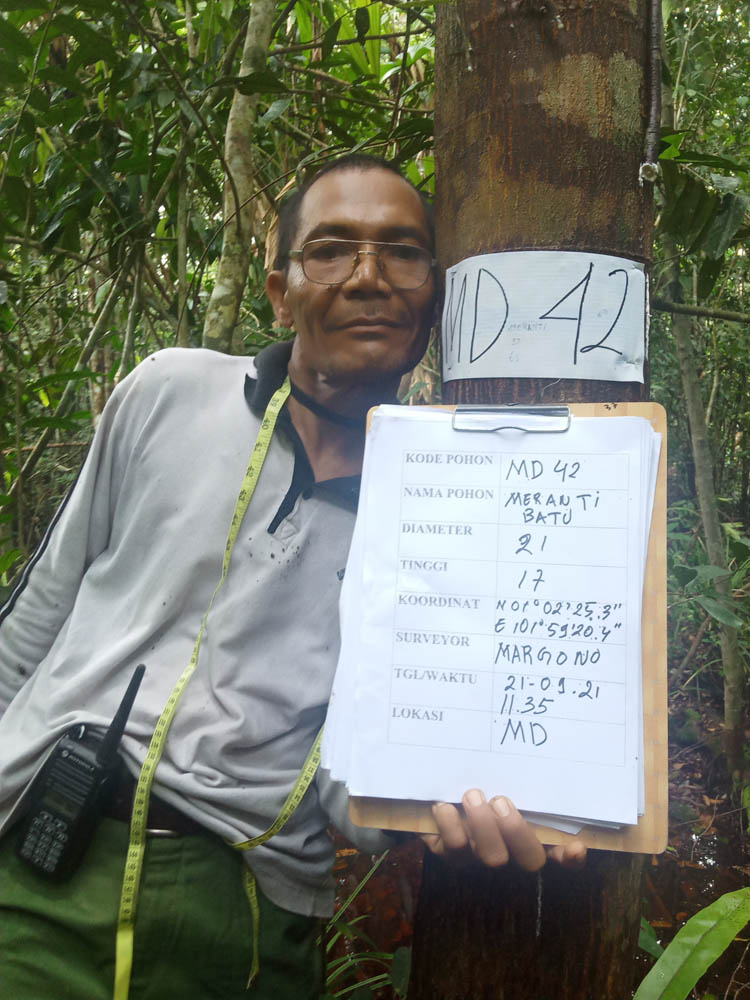 MD 42
MERANTI
KODE POHON MD 42
NAMA POHON MERANTI
BATU
DIAMETER 21
TINGGI 17
KOORDINAT N 01° 02' 25.3"
E 101° 59' 20.4"
SURVEYOR MARGONO
TGL/WAKTU 21-09.21
11.35
LOKASI MD